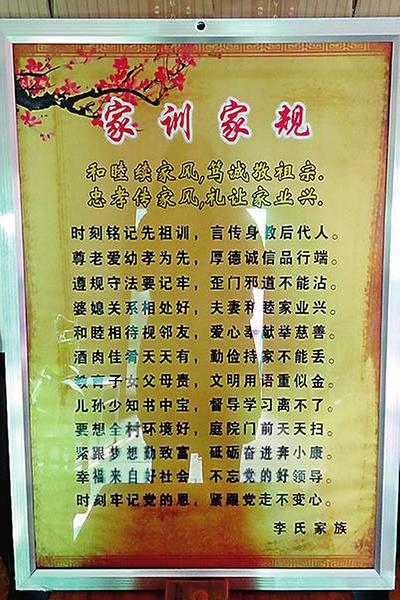 家训家规
和睦续家风,笃诚敬祖宗.
忠孝传家风,礼让家业兴.
时刻铭记先祖训，言传身教后代人。
尊老爱幼孝为先，厚德诚信品行端。
遵规守法要记牢，歪门邪道不能沾。
婆媳关系相处好，夫妻和睦家业兴。
和睦相待视邻友，爱心奉献举慈善。
酒肉佳肴天天有，勤俭持家不能丢。
教育子女父母责，文明用语重似金。
儿孙少知书中宝，督导学习离不了。
要想全村环境好，庭院门前天天扫。
紧跟梦想勤致富，砥砺奋进奔小康。
幸福来自好社会，不忘党的好领导。
时刻牢记党的恩，紧跟党走不变心。
李氏家族